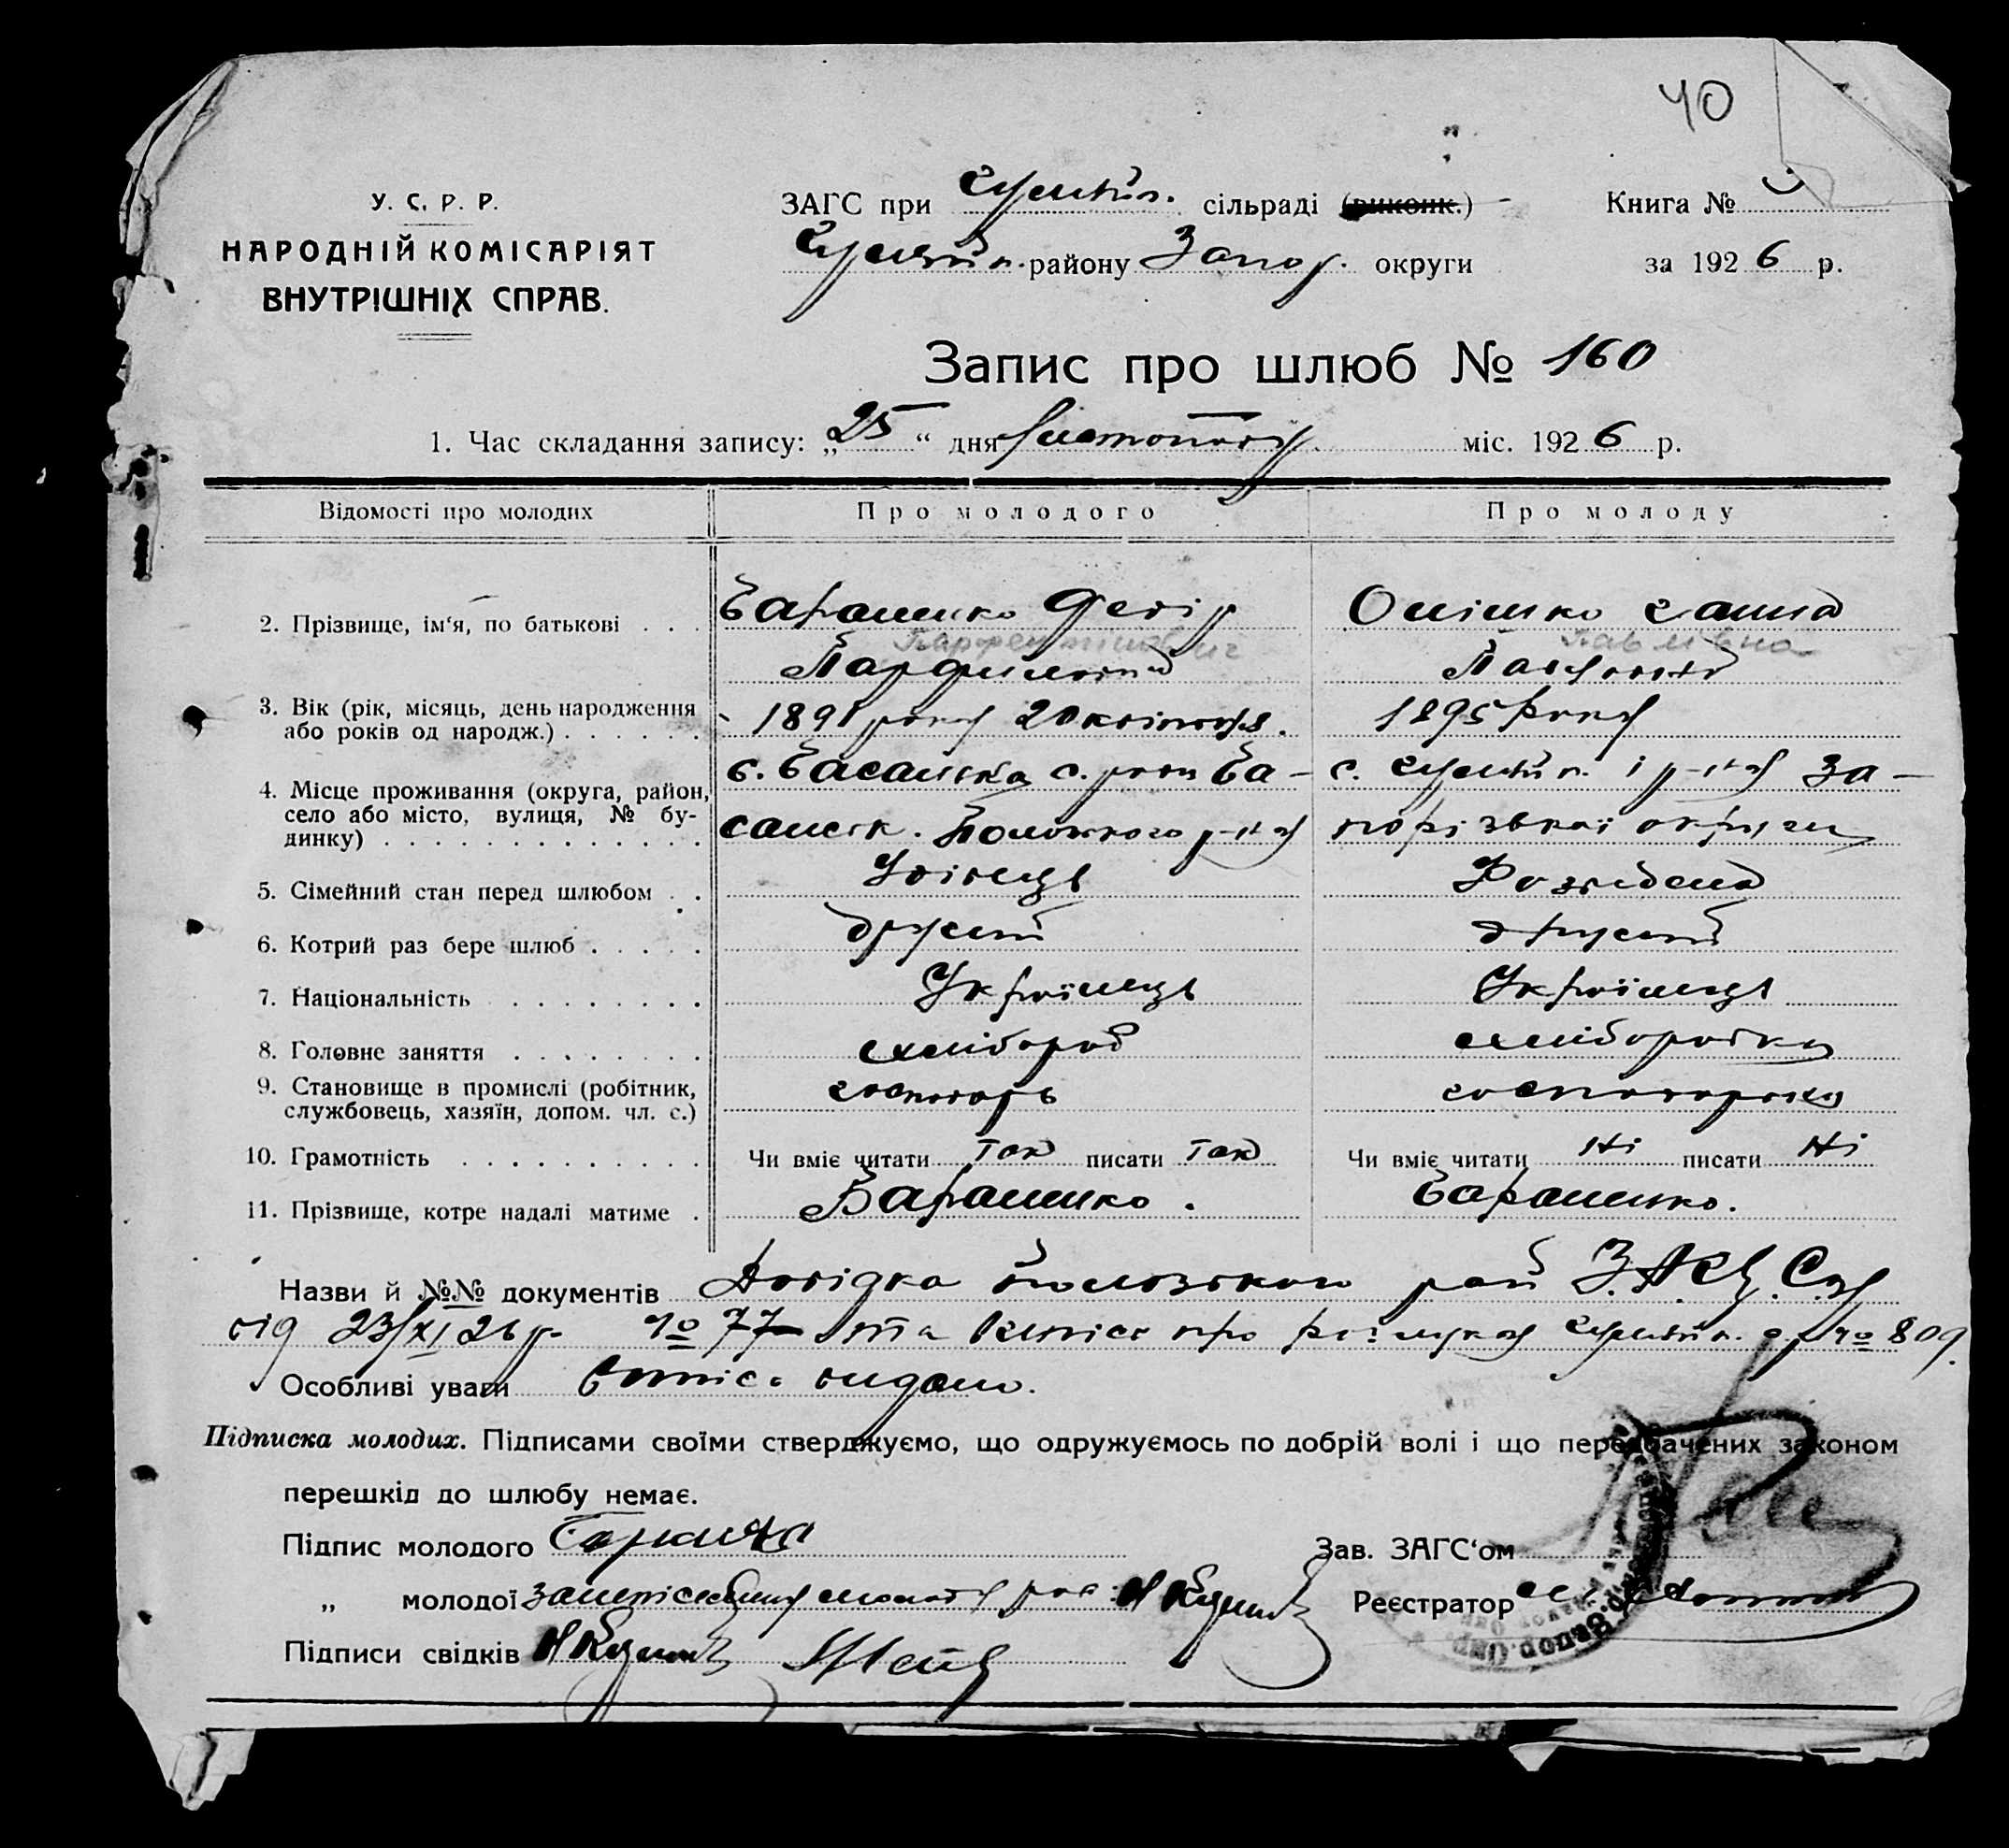 40
У. С. Р. Р.
НАРОДНІЙ КОМІСАРІЯТ
ВНУТРІШНІХ СПРАВ.
ЗАГС при Гуляйп. сільраді (виконк.)
Гуляйп. району Запор. округи
Книга №
за 1926 р.
Запис про шлюб № 160
1. Час складання запису: „25“ дня листопаду міс. 1926 р.
Відомості про молодих Про молодого Про молоду
2. Прізвище, ім‘я, по батькові Бараненко Федір Онішко Ганна
Парфентійович Павлівна
3. Вік (рік, місяць, день народження або років од народж.) 1891 року 20 квітня. 1895 року
4. Місце проживання (округа, район, село або місто, вулиця, № будинку) с. Басанька с. ради Ба- с. Гуляйп. і р-ну За-
санськ. Пологського р-ну порізької округи
5. Сімейний стан перед шлюбом Удівець Розведена
6. Котрий раз бере шлюб другий другий
7. Національність Українець Українець
8. Головне заняття хлібороб хлібородка
9. Становище в промислі (робітник, службовець, хазяїн, допом. чл. с.) господарь господарка
10. Грамотність Чи вміє читати так писати так Чи вміє читати Ні писати Ні
11. Прізвище, котре надалі матиме Бараненко. Бараненко.
Назви й №№ документів Довідка Пологського рай З.А.Г.Су
від 23/XI 26 р. № 77 та Витяг про розлуку Гуляйп. с.р № 809.
Особливі уваги Витяг видано.
Підписка молодих. Підписами своїми стверджуємо, що одружуємось по добрій волі і що передбачених законом
перешкід до шлюбу немає.
Підпис молодого
Зав. ЗАГС‘ом
„ молодої
Реєстратор
Підписи свідків